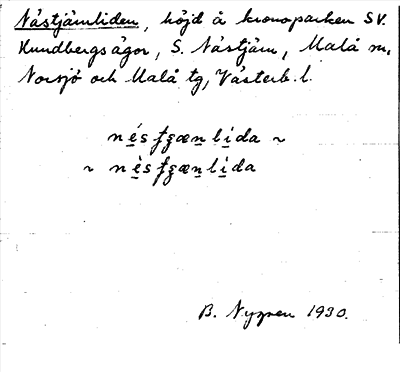 Nästjämliden, höjd å kronoparken SV.
Hundbergsägor, S. Nästjäm, Malå sn,
Norsjö och Malå tg, Västerb. l.
nésfȝænlida ~
~ nèsfȝænlida
B. Nygren 1930.